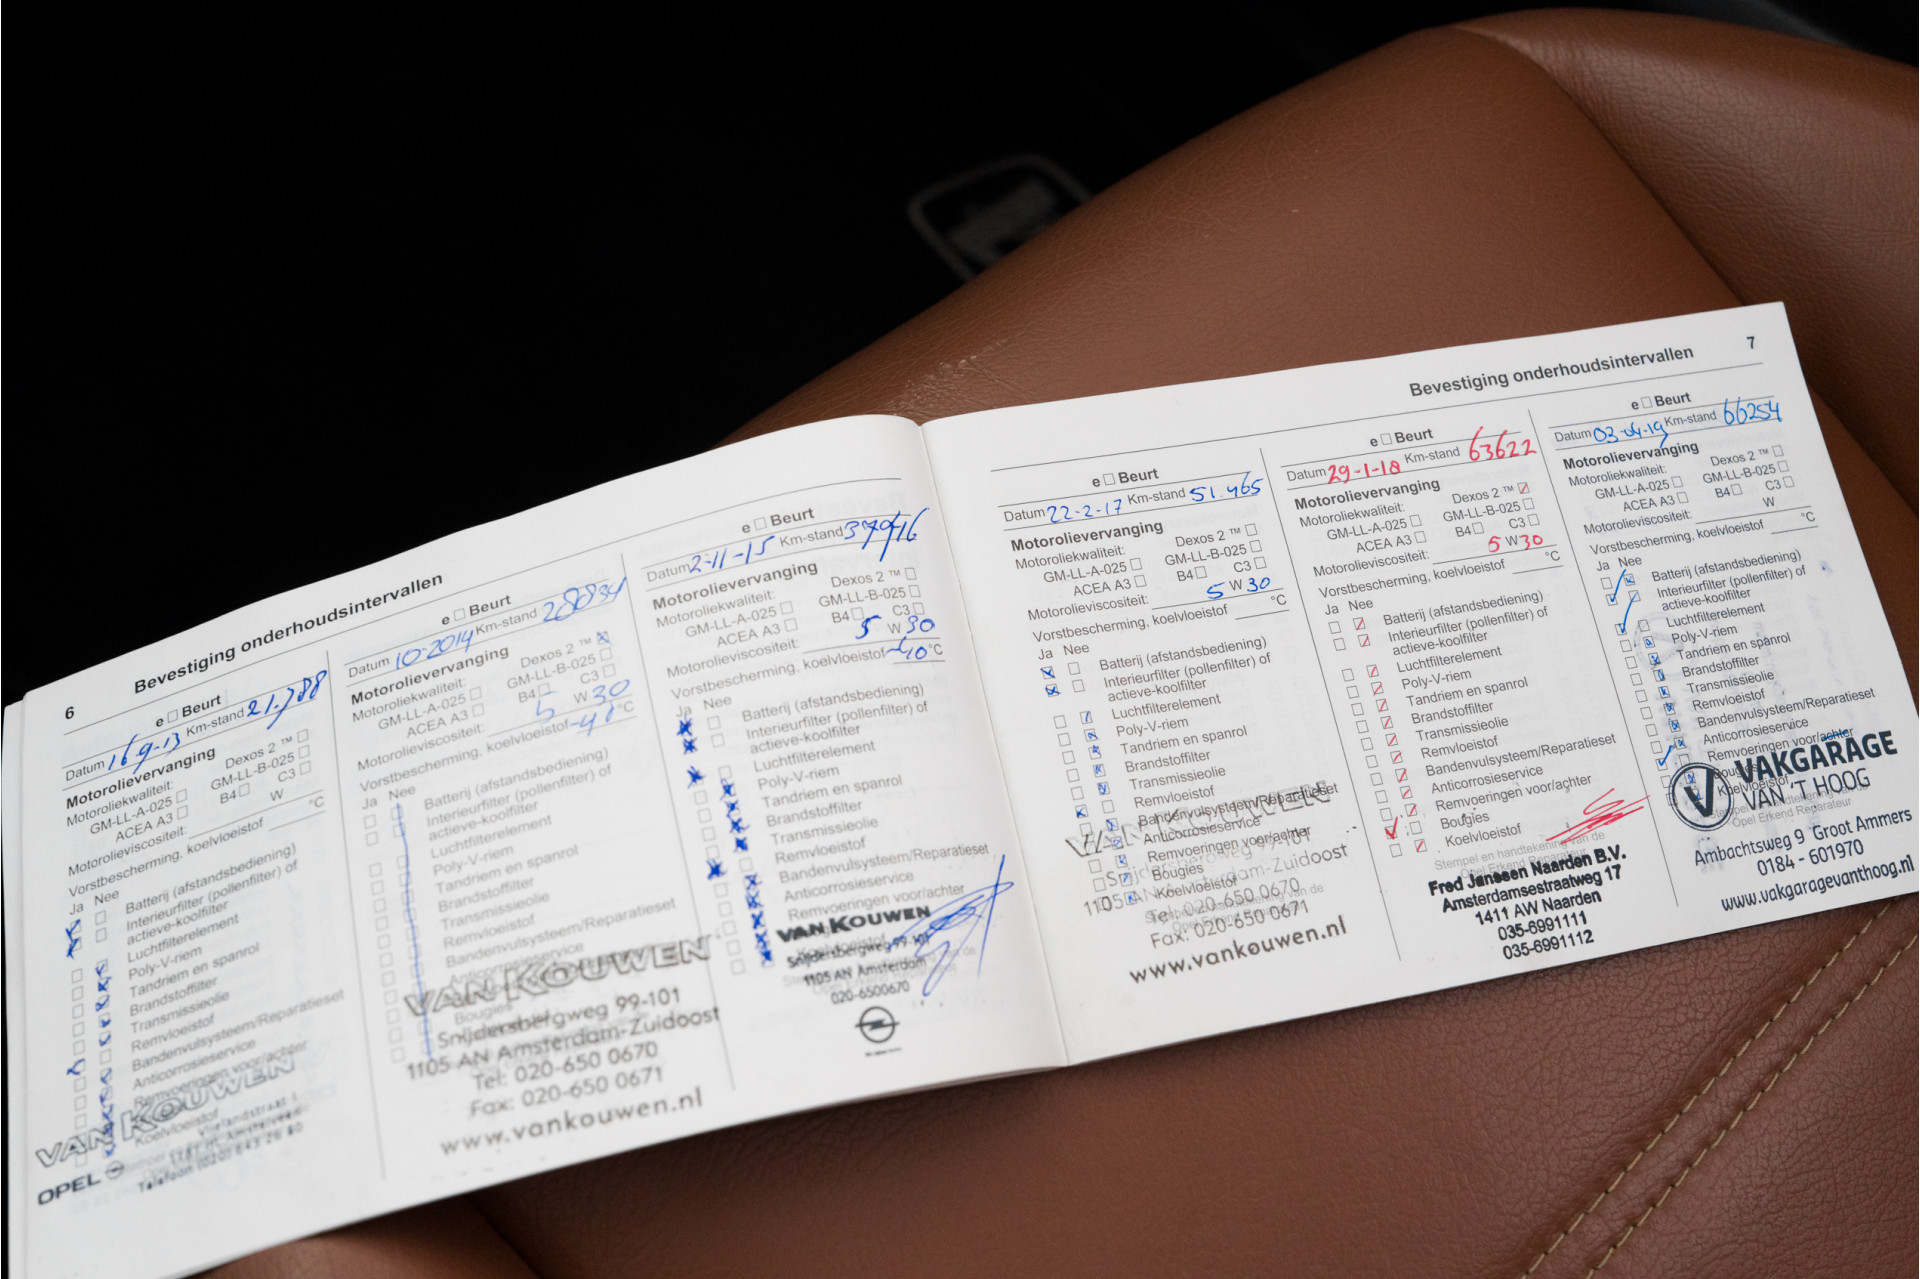 6
Bevestiging onderhoudsintervallen
e □ Beurt
Datum 16-9-13 Km-stand 21.788
Motorolievervanging
Motoroliekwaliteit: Dexos 2 ™ □
GM-LL-A-025 □ GM-LL-B-025 □
ACEA A3 □ B4 □ C3 □
Motorolieviscositeit: W
Vorstbescherming, koelvloeistof °C
Ja Nee
Batterij (afstandsbediening)
Interieurfilter (pollenfilter) of
actieve-koolfilter
Luchtfilterelement
Poly-V-riem
Tandriem en spanrol
Brandstoffilter
Transmissieolie
Remvloeistof
Bandenvulsysteem/Reparatieset
Anticorrosieservice
Remvoeringen voor/achter
Koelvloeistof
VAN KOUWEN
OPEL
e □ Beurt
Datum 10-2014 Km-stand 28834
Motorolievervanging
Motoroliekwaliteit: Dexos 2 ™ ☒
GM-LL-A-025 □ GM-LL-B-025 □
ACEA A3 □ B4 □ C3 □
Motorolieviscositeit: 5 W 30
Vorstbescherming, koelvloeistof -40 °C
Ja Nee
Batterij (afstandsbediening)
Interieurfilter (pollenfilter) of
actieve-koolfilter
Luchtfilterelement
Poly-V-riem
Tandriem en spanrol
Brandstoffilter
Transmissieolie
Remvloeistof
Bandenvulsysteem/Reparatieset
Anticorrosieservice
Bougies
VAN KOUWEN
Snijdersbergweg 99-101
1105 AN Amsterdam-Zuidoost
Tel: 020-650 0670
Fax: 020-650 0671
www.vankouwen.nl
e □ Beurt
Datum 2-11-15 Km-stand 37916
Motorolievervanging
Motoroliekwaliteit: Dexos 2 ™ □
GM-LL-A-025 □ GM-LL-B-025 □
ACEA A3 □ B4 □ C3 □
Motorolieviscositeit: 5 W 30
Vorstbescherming, koelvloeistof -40 °C
Ja Nee
Batterij (afstandsbediening)
Interieurfilter (pollenfilter) of
actieve-koolfilter
Luchtfilterelement
Poly-V-riem
Tandriem en spanrol
Brandstoffilter
Transmissieolie
Remvloeistof
Bandenvulsysteem/Reparatieset
Anticorrosieservice
Remvoeringen voor/achter
Koelvloeistof
VAN KOUWEN
Snijdersbergweg 99-101
1105 AN Amsterdam
020-6500670
Bevestiging onderhoudsintervallen
7
e □ Beurt
Datum 22-2-17 Km-stand 51.465
Motorolievervanging
Motoroliekwaliteit: Dexos 2 ™ □
GM-LL-A-025 □ GM-LL-B-025 □
ACEA A3 □ B4 □ C3 □
Motorolieviscositeit: 5 W 30
Vorstbescherming, koelvloeistof °C
Ja Nee
Batterij (afstandsbediening)
Interieurfilter (pollenfilter) of
actieve-koolfilter
Luchtfilterelement
Poly-V-riem
Tandriem en spanrol
Brandstoffilter
Transmissieolie
Remvloeistof
Bandenvulsysteem/Reparatieset
Anticorrosieservice
Remvoeringen voor/achter
Bougies
Koelvloeistof
VAN KOUWEN
Snijdersbergweg 99-101
1105 AN Amsterdam-Zuidoost
Tel: 020-650 0670
Fax: 020-650 0671
www.vankouwen.nl
e □ Beurt
Datum 29-1-18 Km-stand 63622
Motorolievervanging
Motoroliekwaliteit: Dexos 2 ™ ☑
GM-LL-A-025 □ GM-LL-B-025 □
ACEA A3 □ B4 □ C3 □
Motorolieviscositeit: 5 W 30
Vorstbescherming, koelvloeistof °C
Ja Nee
Batterij (afstandsbediening)
Interieurfilter (pollenfilter) of
actieve-koolfilter
Luchtfilterelement
Poly-V-riem
Tandriem en spanrol
Brandstoffilter
Transmissieolie
Remvloeistof
Bandenvulsysteem/Reparatieset
Anticorrosieservice
Remvoeringen voor/achter
Bougies
Koelvloeistof
Stempel en handtekening van de
Opel Erkend Reparateur
Fred Janssen Naarden B.V.
Amsterdamsestraatweg 17
1411 AW Naarden
035-6991111
035-6991112
e □ Beurt
Datum 03-04-19 Km-stand 66254
Motorolievervanging
Motoroliekwaliteit: Dexos 2 ™ □
GM-LL-A-025 □ GM-LL-B-025 □
ACEA A3 □ B4 □ C3 □
Motorolieviscositeit: W
Vorstbescherming, koelvloeistof °C
Ja Nee
Batterij (afstandsbediening)
Interieurfilter (pollenfilter) of
actieve-koolfilter
Luchtfilterelement
Poly-V-riem
Tandriem en spanrol
Brandstoffilter
Transmissieolie
Remvloeistof
Bandenvulsysteem/Reparatieset
Anticorrosieservice
Remvoeringen voor/achter
Bougies
Koelvloeistof
Stempel en handtekening van de
Opel Erkend Reparateur
V VAKGARAGE
VAN 'T HOOG
Ambachtsweg 9 Groot Ammers
0184 - 601970
www.vakgaragevanthoog.nl